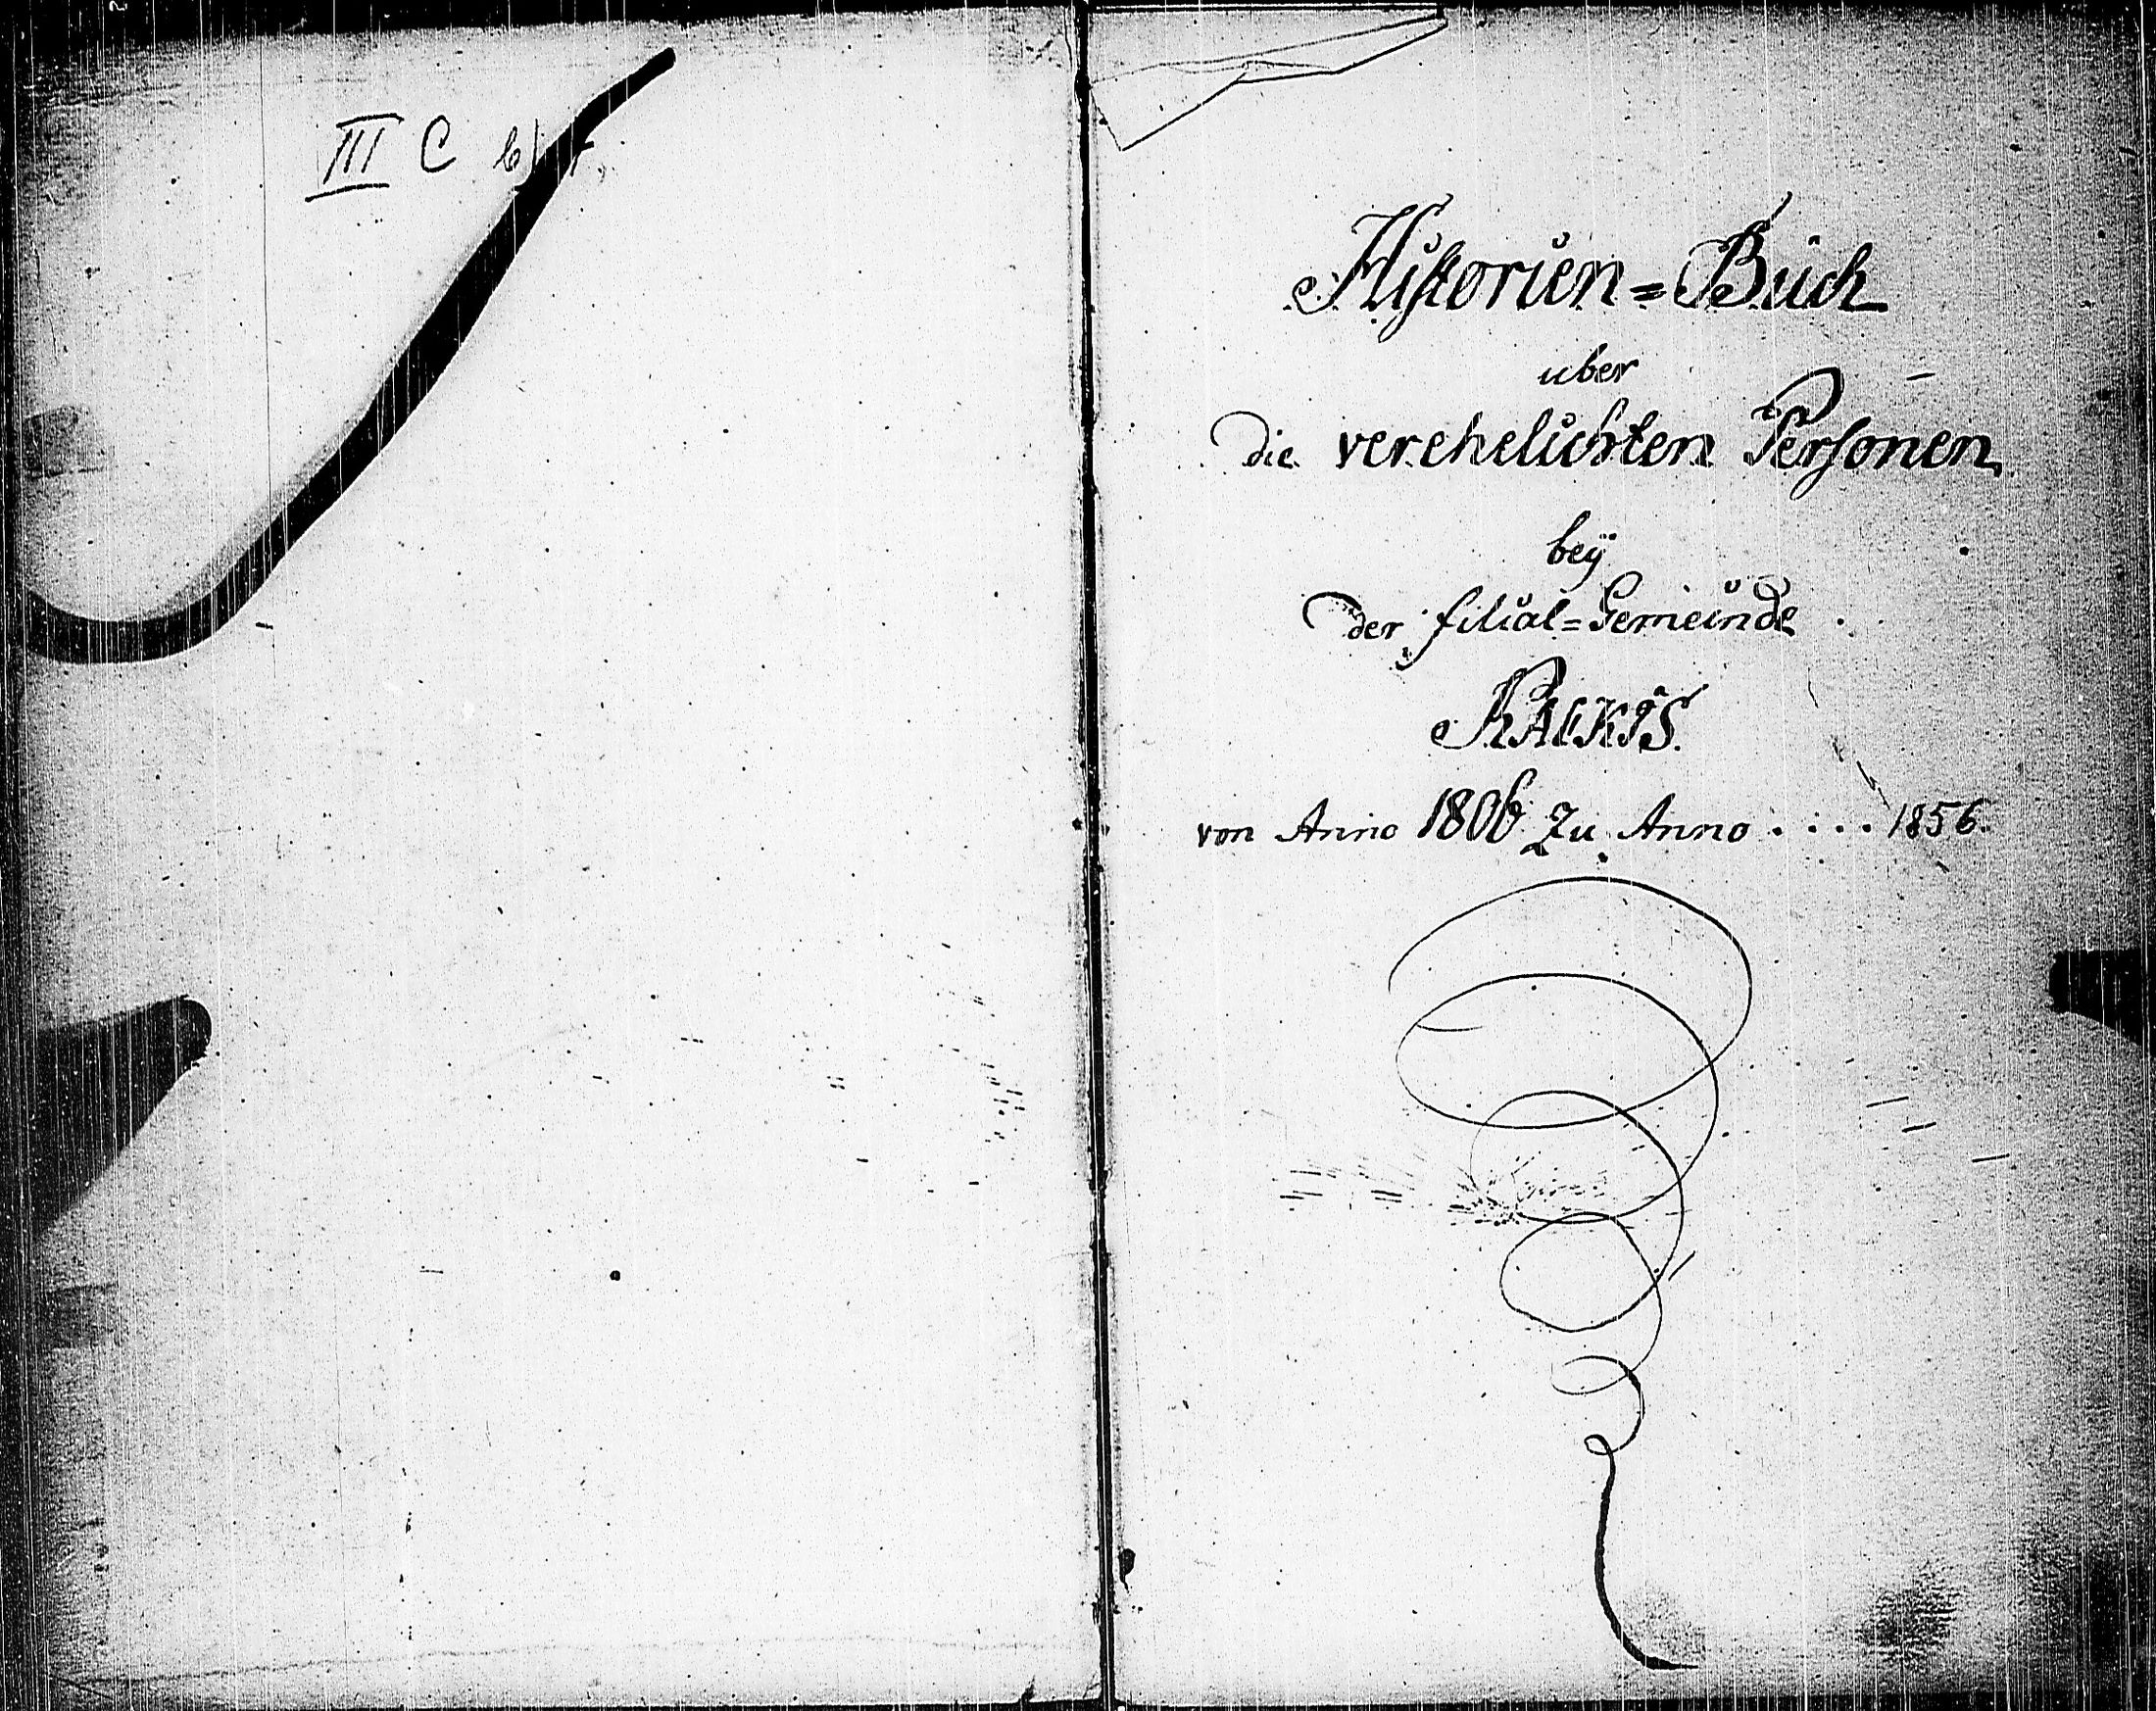 III C b)
Historien=Buch
uber
die verehelichten Personen
beÿ
der filial=Gemeinde
KALKIS.
von Anno 1806 zu Anno . . . . 1856.